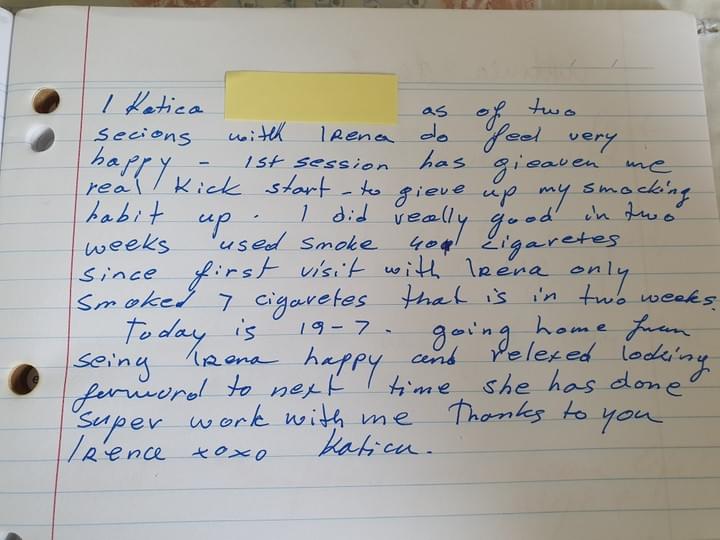 I Katica as of two
secions with Irena do feel very
happy - 1st session has gieaven me
real kick start - to gieve up my smocking
habit up. I did really good in two
weeks used smoke cigaretes
since first visit with Irena only
smoked 7 cigaretes that is in two weeks.
Today is 19-7. going home from
seing Irena happy and relexed looking
forword to next time she has done
super work with me Thanks to you
Irena xoxo Katica.